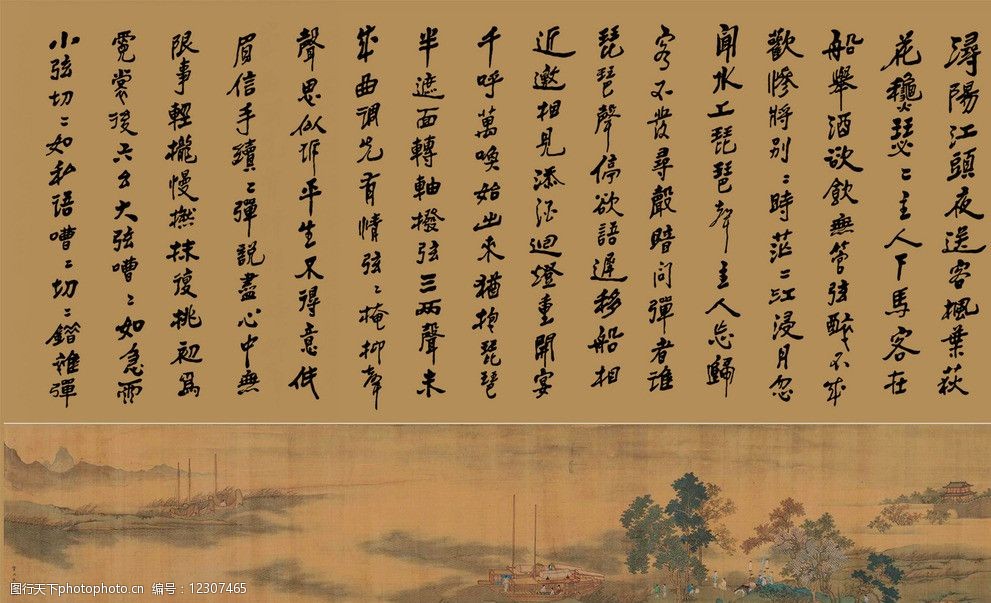 潯陽江頭夜送客楓葉荻
花龝瑟〻主人下馬客在
船舉酒欲飲無管弦醉不成
歡慘將别〻時茫〻江浸月忽
聞水上琵琶聲主人忘歸
客不發尋聲暗问彈者誰
琵琶聲停欲語遲移船相
近邀相見添酒迴燈重開宴
千呼萬喚始出來猶抱琵琶
半遮面轉軸撥弦三兩聲未
成曲調先有情弦〻掩抑聲
聲思似訴平生不得意低
眉信手續〻彈説盡心中無
限事輕攏慢撚抹復挑初為
霓裳後六幺大弦嘈〻如急雨
小弦切〻如私語嘈〻切〻錯雜彈
图行天下photophoto.cn 编号：12307465